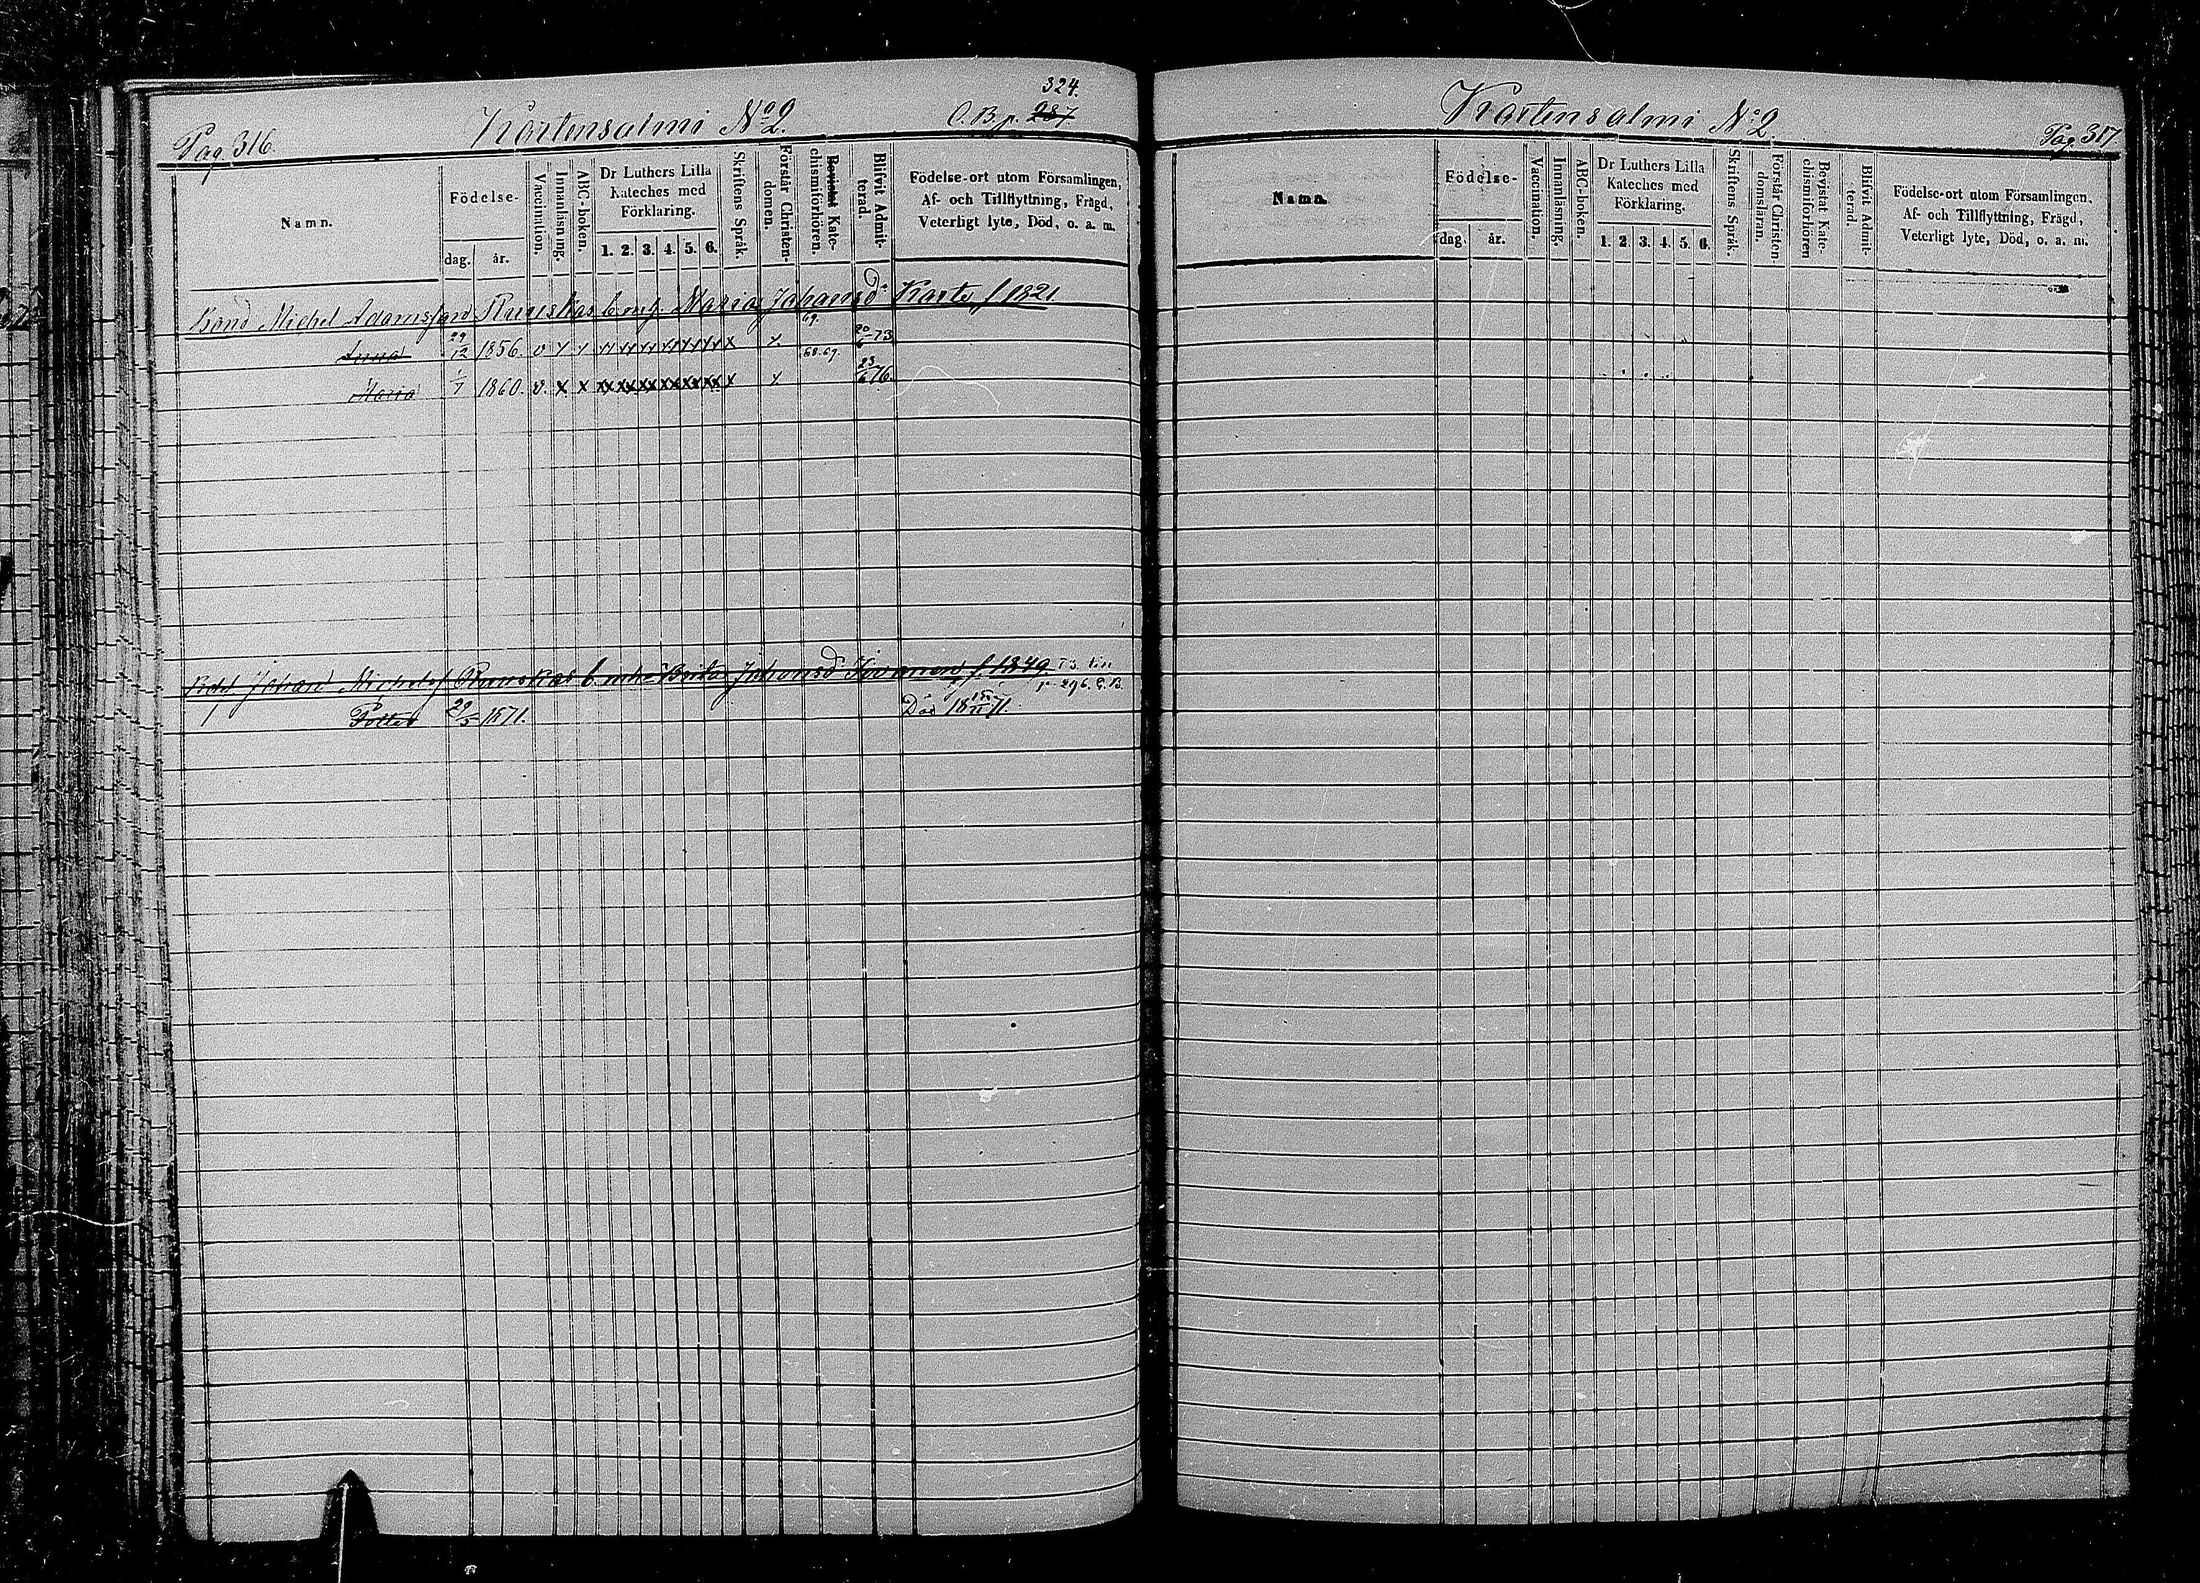 324.
Pag. 316. Kartensalmi No 2. C. B. p. 287
Namn.
Födelse-
dag. år.
Vaccination.
Innanläsning.
ABC-boken.
Dr Luthers Lilla
Kateches med
Förklaring.
1. 2. 3. 4. 5. 6.
Skriftens Språk.
Förstår Christen-
domen.
Bevistat Kate-
chismiförhören.
Blifvit Admit-
terad.
Födelse-ort utom Församlingen,
Af- och Tillflyttning, Frägd,
Veterligt lyte, Död, o. a. m.
Bond Michel Adamsson b. Maria Johansd. f. 1821.
29/12 1856. v x x x x 68. 69. 20/6 73
Maria 1/7 1860. v. x x xx xx xx xx xx xx x x 23/6 76.
Johan Michels b. Brita Johansd f. 1849.
p. 296. C. B.
Petter 29/5 1871. Död 18 71.
Kartensalmi No 2. Pag. 317
Namn.
Födelse-
dag. år.
Vaccination.
Innanläsning.
ABC-boken.
Dr Luthers Lilla
Kateches med
Förklaring.
1. 2. 3. 4. 5. 6.
Skriftens Språk.
Förstår Christen-
domsläran.
Bevistat Kate-
chismiförhören
Blifvit Admit-
terad.
Födelse-ort utom Församlingen,
Af- och Tillflyttning, Frägd,
Veterligt lyte, Död, o. a. m.